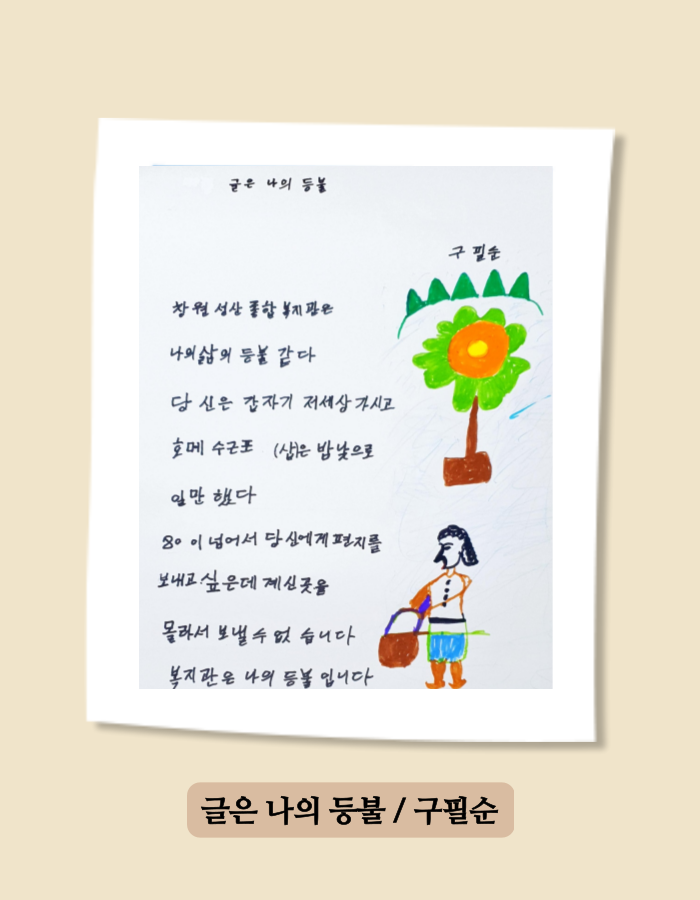 글은 나의 등불
구 필순
창원 성산 종합 복지관은
나의삶의 등불 같다
당신은 갑자기 저세상 가시고
호메 수근포 (삽)은 밤낮으로
일만 했다
80 이 넘어서 당신에게 편지를
보내고 싶은데 계신곳을
몰라서 보낼 수 없 습니다
복지관은 나의 등불 입니다
글은 나의 등불 / 구필순